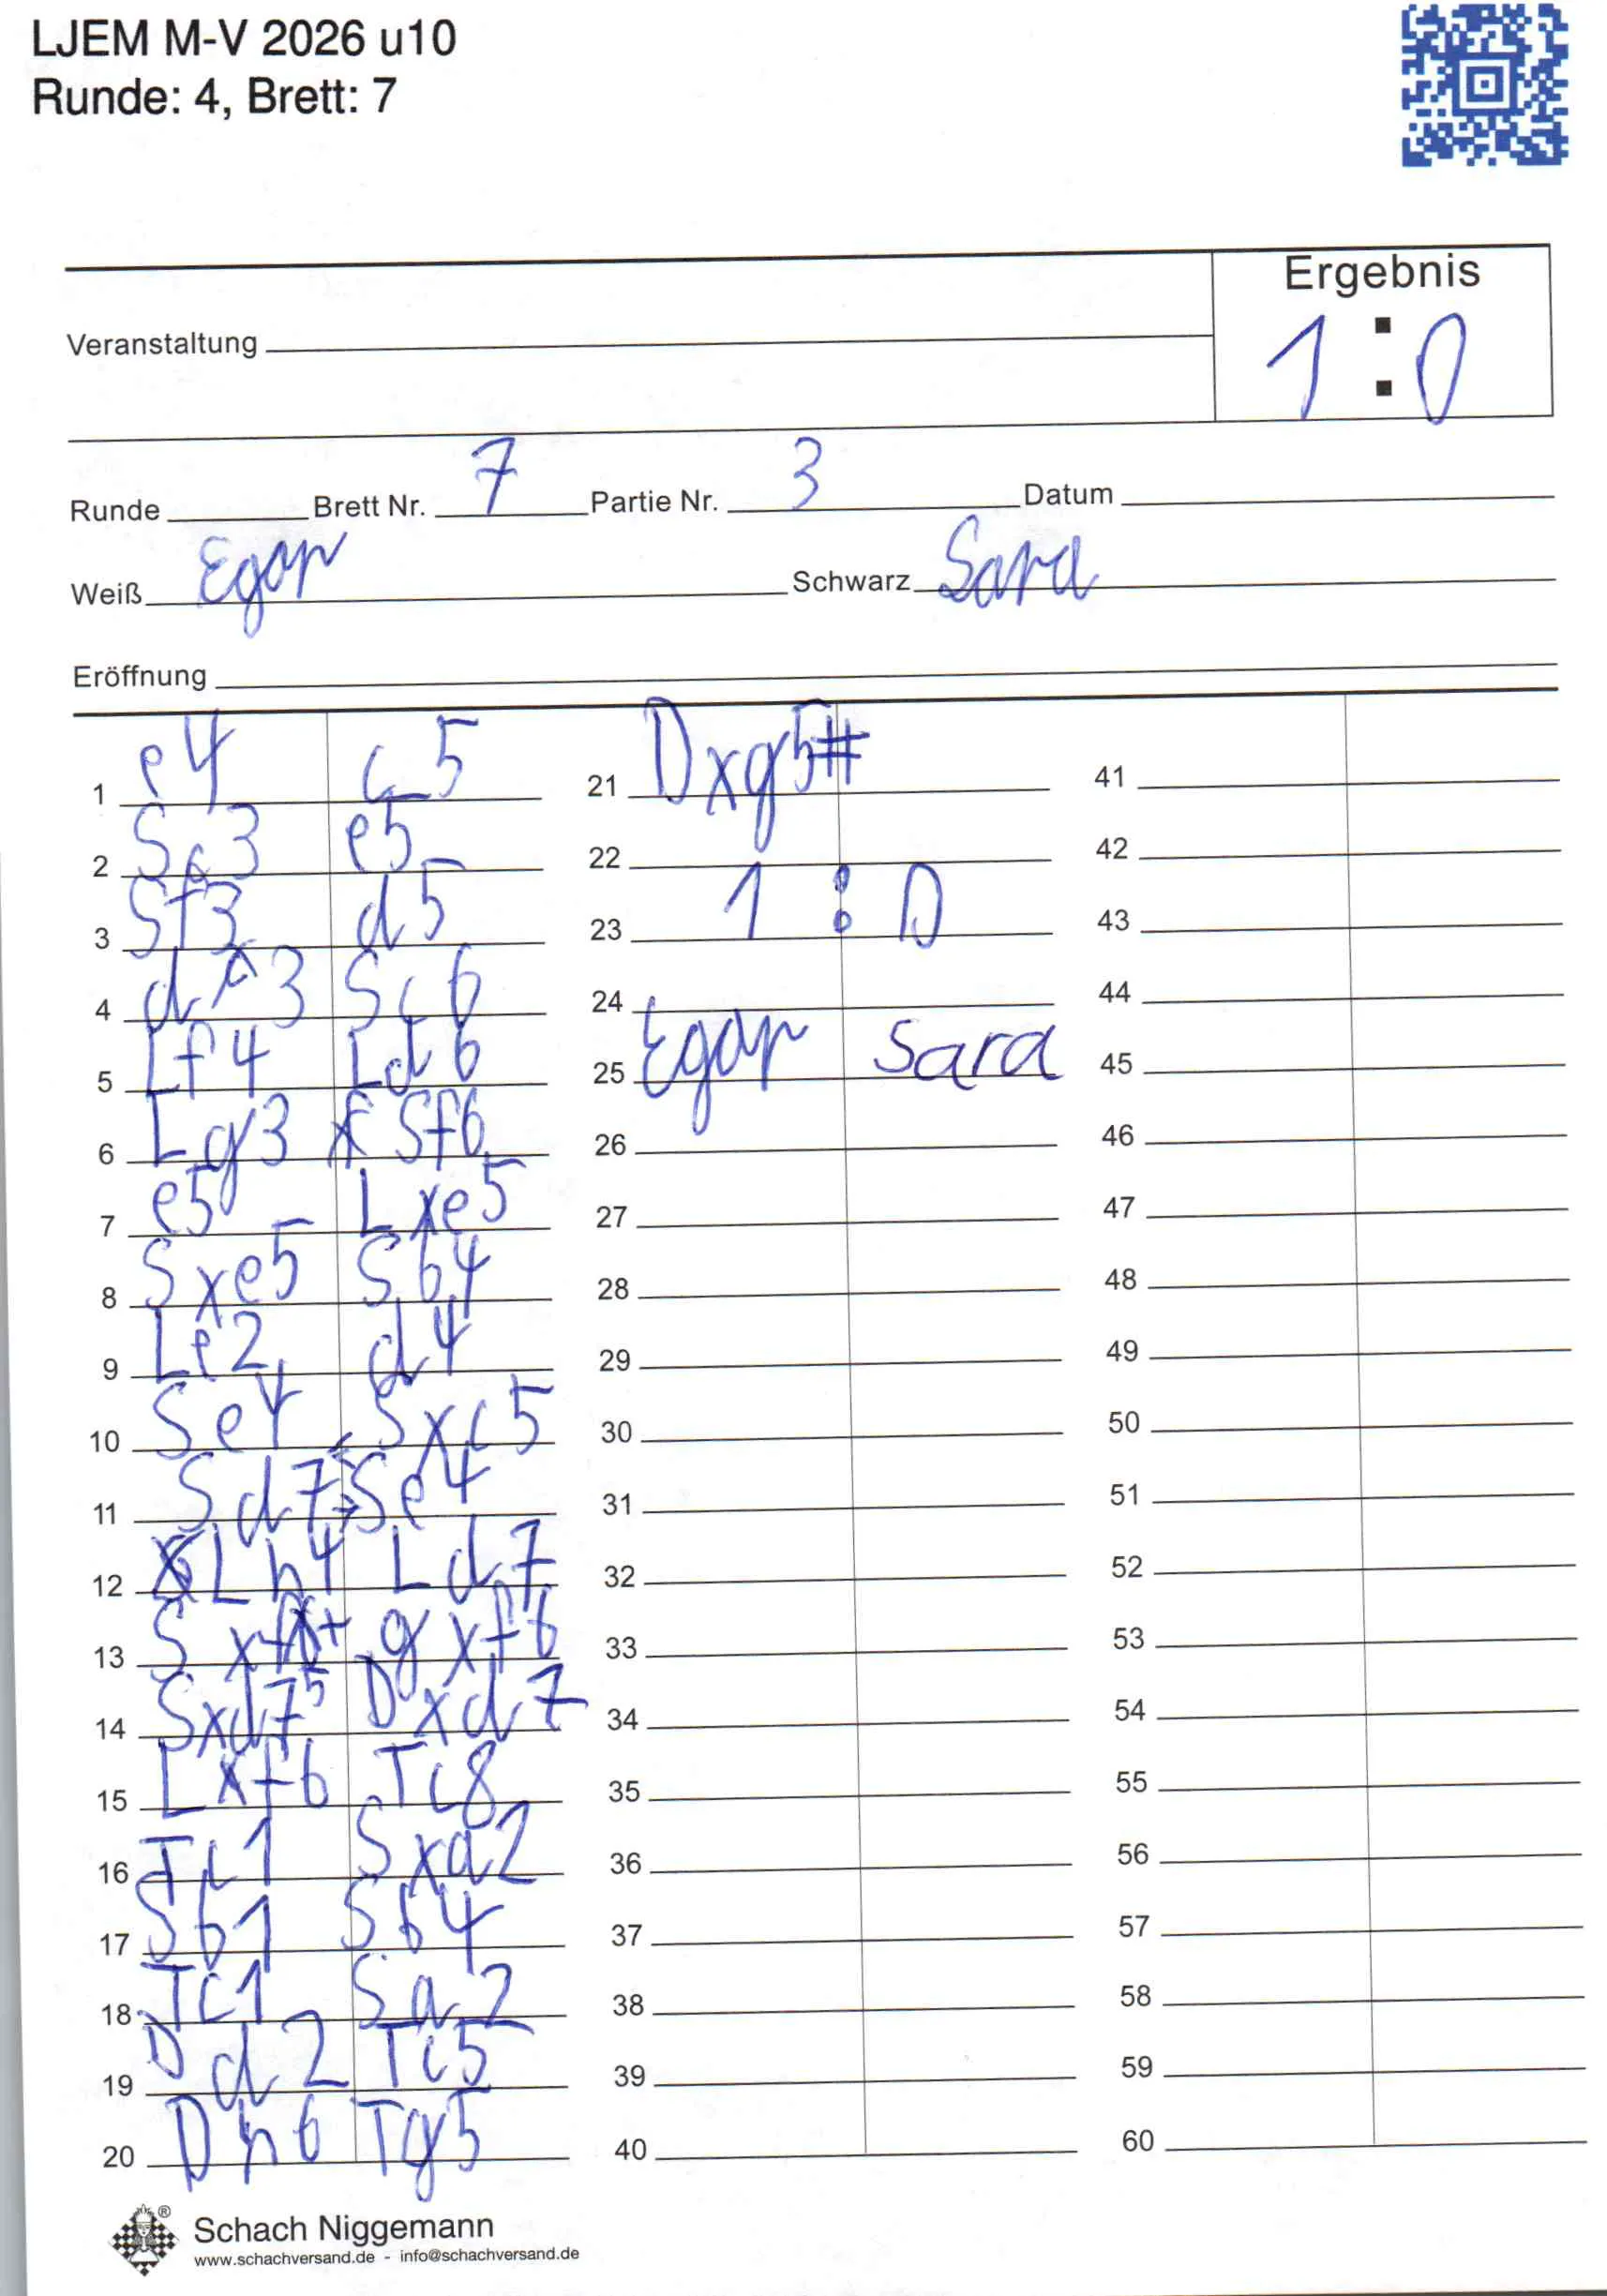 LJEM M-V 2026 u10
Runde: 4, Brett: 7
Ergebnis
1 : 0
Veranstaltung
Runde Brett Nr. 7 Partie Nr. 3 Datum
Weiß Egor Schwarz Sara
Eröffnung
1 e4 c5
2 Sc3 e5
3 Sf3 d5
4 d3 Sc6
5 Lf4 Ld6
6 Lg3 Sf6
7 e5 Lxe5
8 Sxe5 Sb4
9 Le2 d4
10 Se4 Sxc5
11 Sd7 Se4
12 Lh4 Ld7
13 Sxf6+ gxf6
14 Sxd7 Dxd7
15 Lxf6 Tc8
16 Tc1 Sxa2
17 Sb1 Sb4
18 Tc1 Sa2
19 Dd2 Tc5
20 Dh6 Tg5
21 Dxg5#
22
23 1 : 0
24
25 Egor Sara
26
27
28
29
30
31
32
33
34
35
36
37
38
39
40
41
42
43
44
45
46
47
48
49
50
51
52
53
54
55
56
57
58
59
60
®
Schach Niggemann
www.schachversand.de - info@schachversand.de